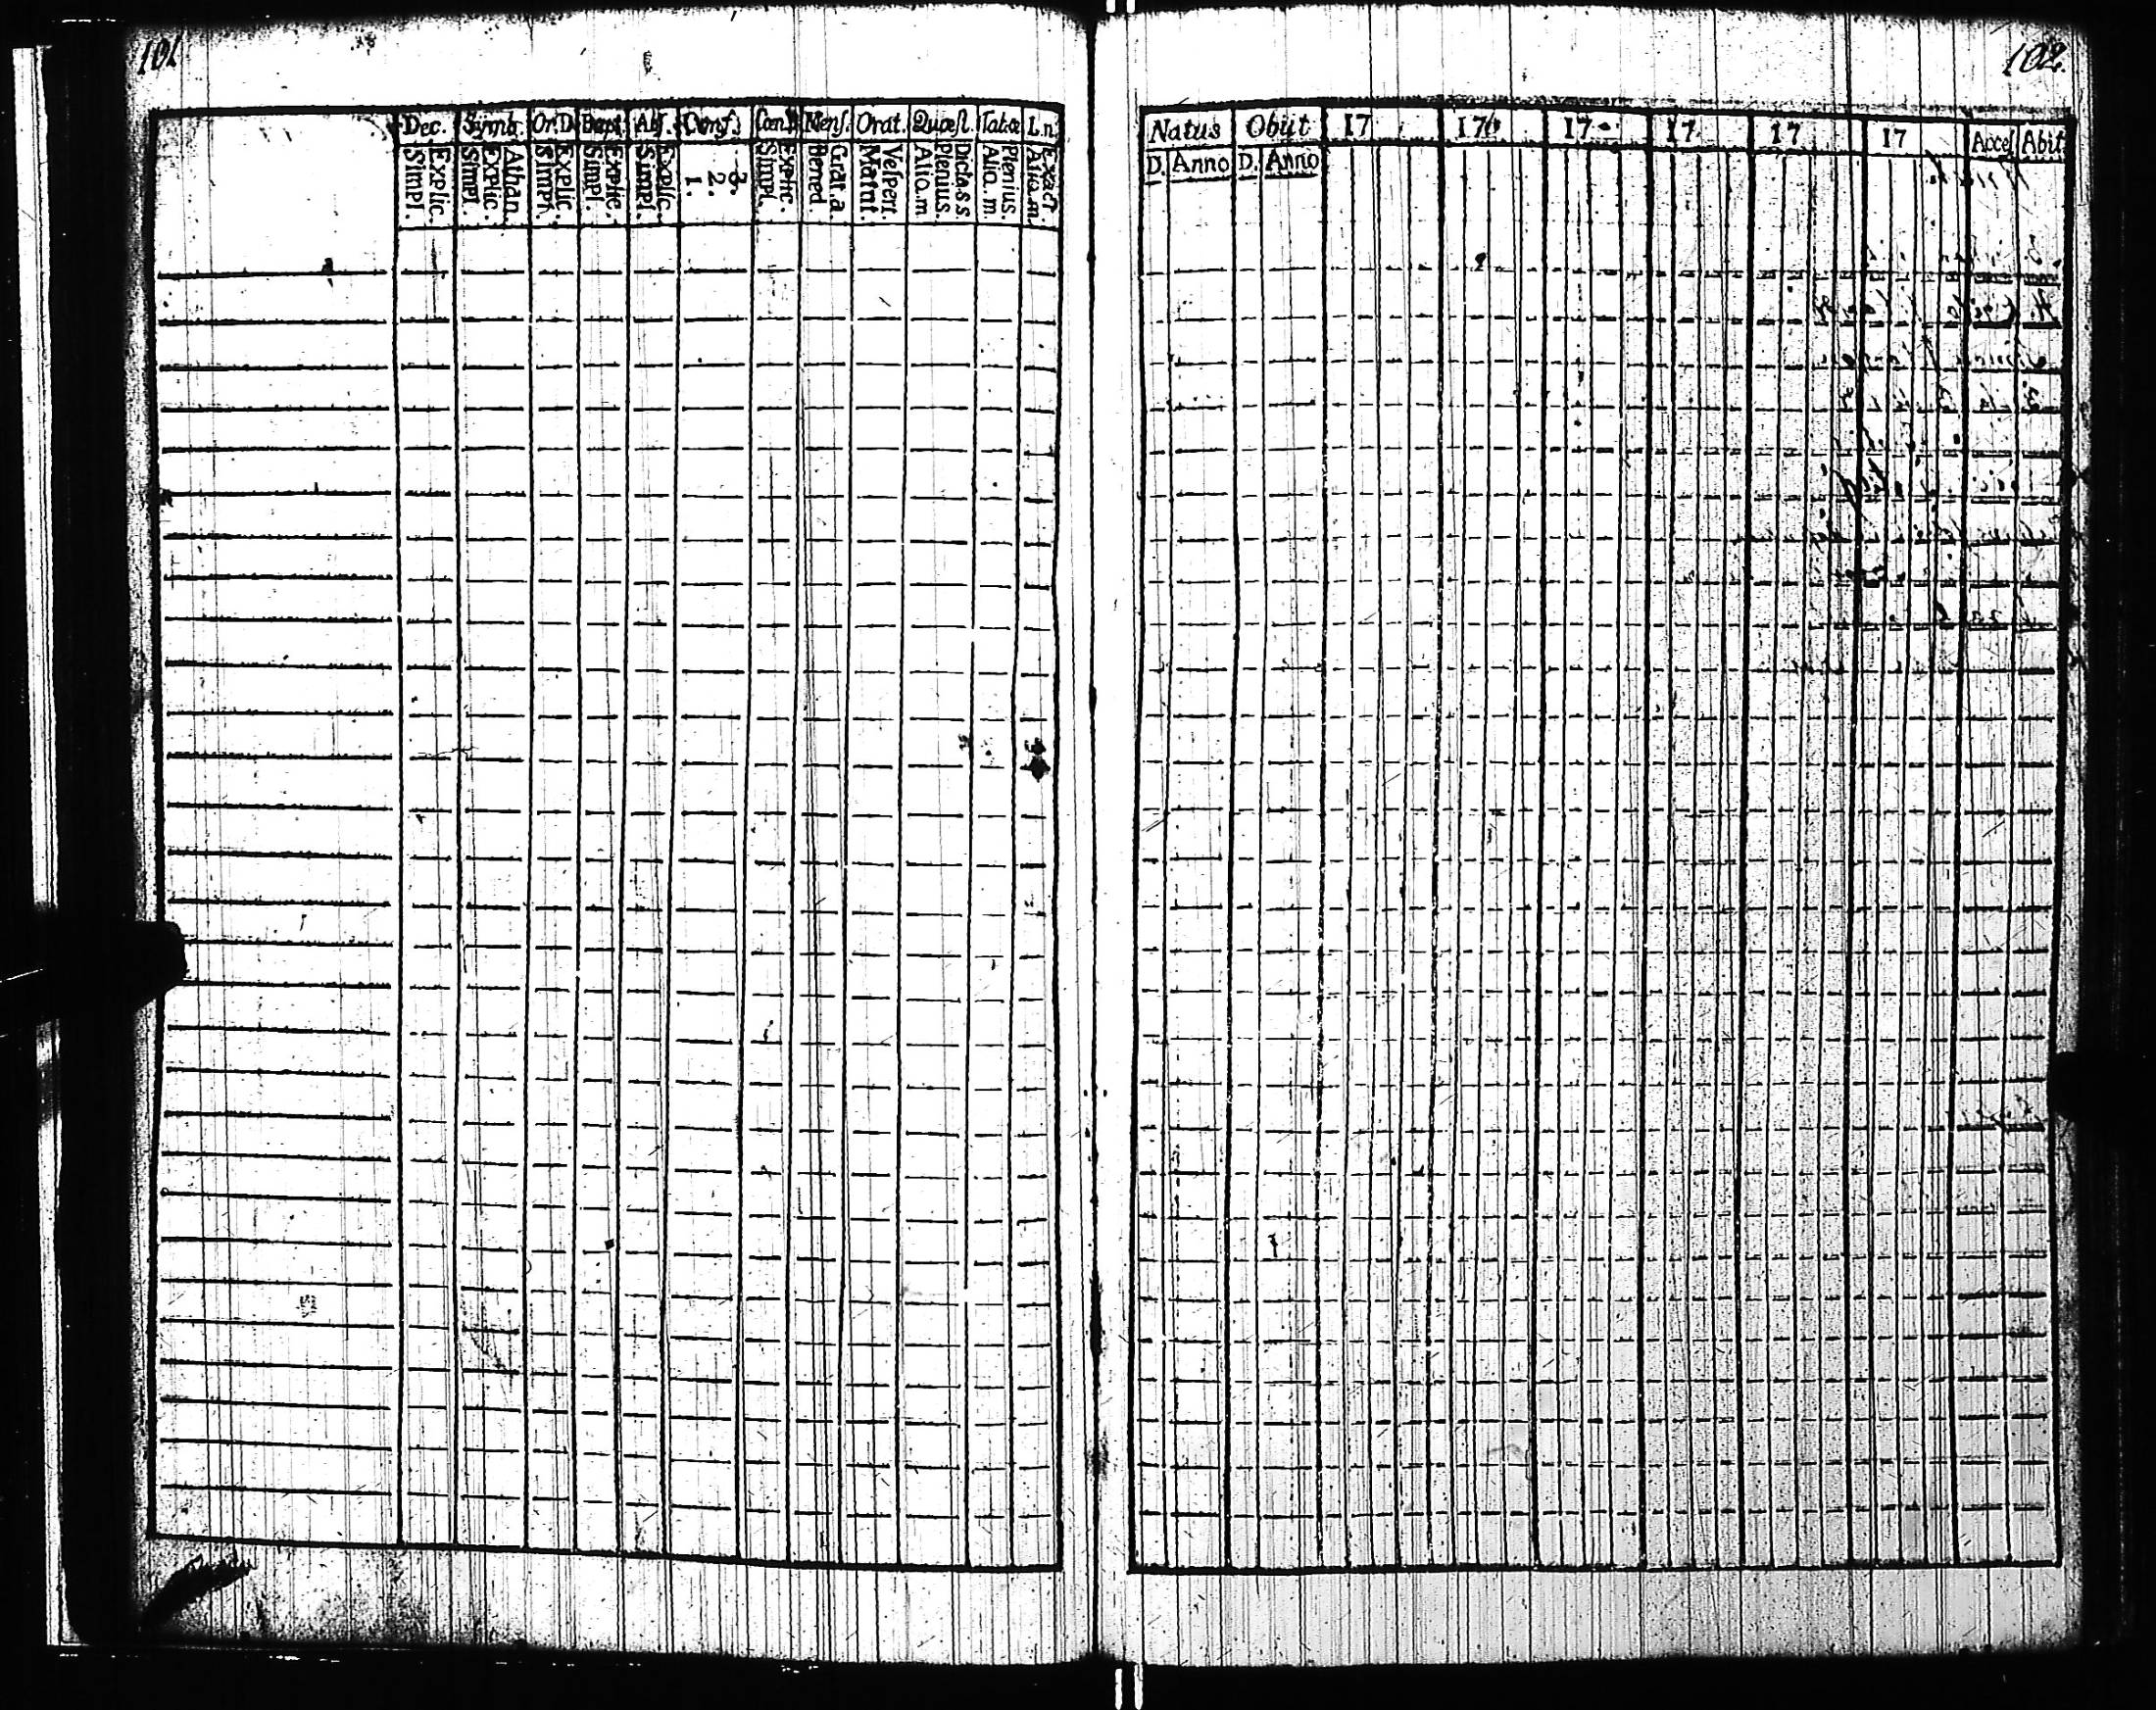 101
Dec. Symb. Or.D Bapt. Abſ. Conf. Cœn.D Menſ. Orat. Quæſt. Tab.œ L.n.
Simpl. Explic. Simpl. Explic. Athan. Simpl. Explic. Simpl. Explic. Simpl. Explic. 1. 2. 3. Simpl. Explic. Bened. Grat.a Matut. Veſpert. Alio.m Plenius. Dicta.s.s Alio.m. Plenius. Alio.m. Exact.
102.
Natus Obiit 17 17 17 17 17 17 Acceſ Abit
D. Anno D. Anno